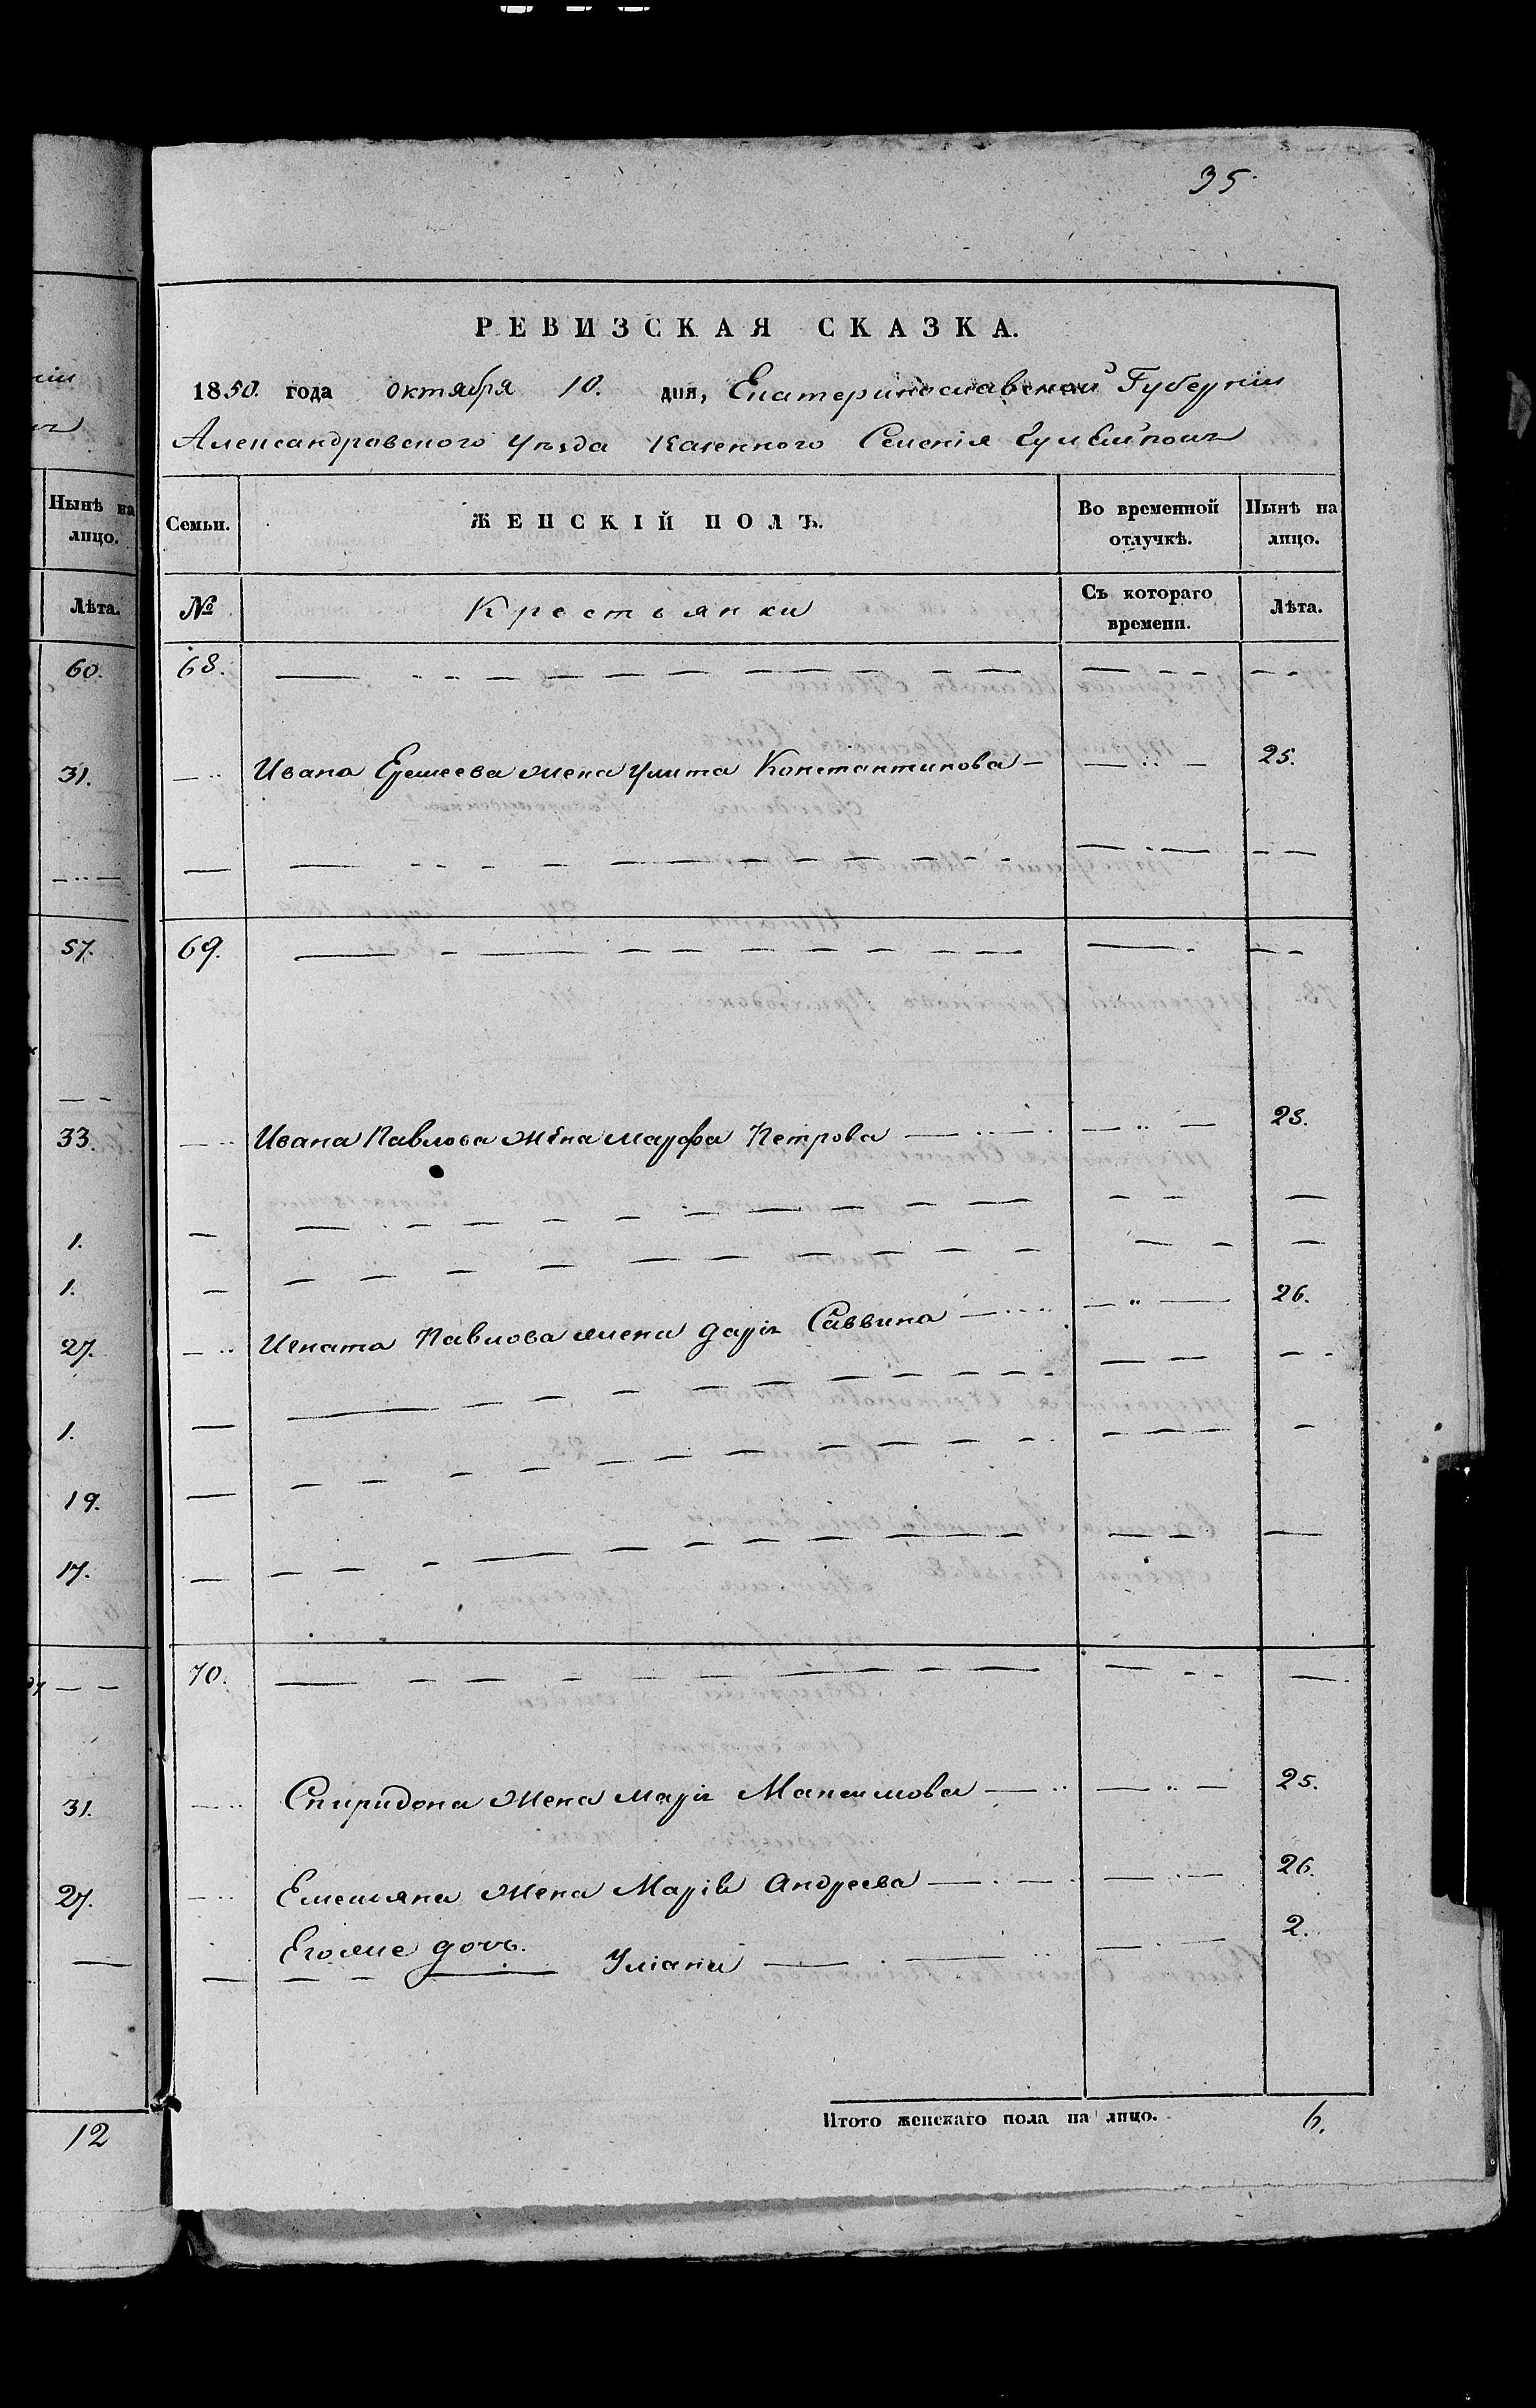 35
РЕВИЗСКАЯ СКАЗКА.
1850. года октября 10. дня, Екатеринославской Губернiи
Александровского Уѣзда Казенного Селенiя Гуляйполя
Нынѣ на лицо.
Семьи. ЖЕНСКIЙ ПОЛЪ. Во временной отлучкѣ. Нынѣ на лицо.
Лѣта.
№ Крестьянки Съ котораго времени. Лѣта.
60.
68.
31.
Ивана Еремеева жена Улита Константинова 25.
57.
69.
33.
Ивана Павлова жена Марфа Петрова 23.
1.
1.
27.
Игната Павлова жена Дарiя Саввина 26.
1.
19.
17.
70.
31.
Спиридона жена Марiя Максимова 25.
27.
Емельяна жена Марiя Андреева 26.
Егоже дочь. Улiана 2.
12
Итого женскаго пола на лицо. 6.